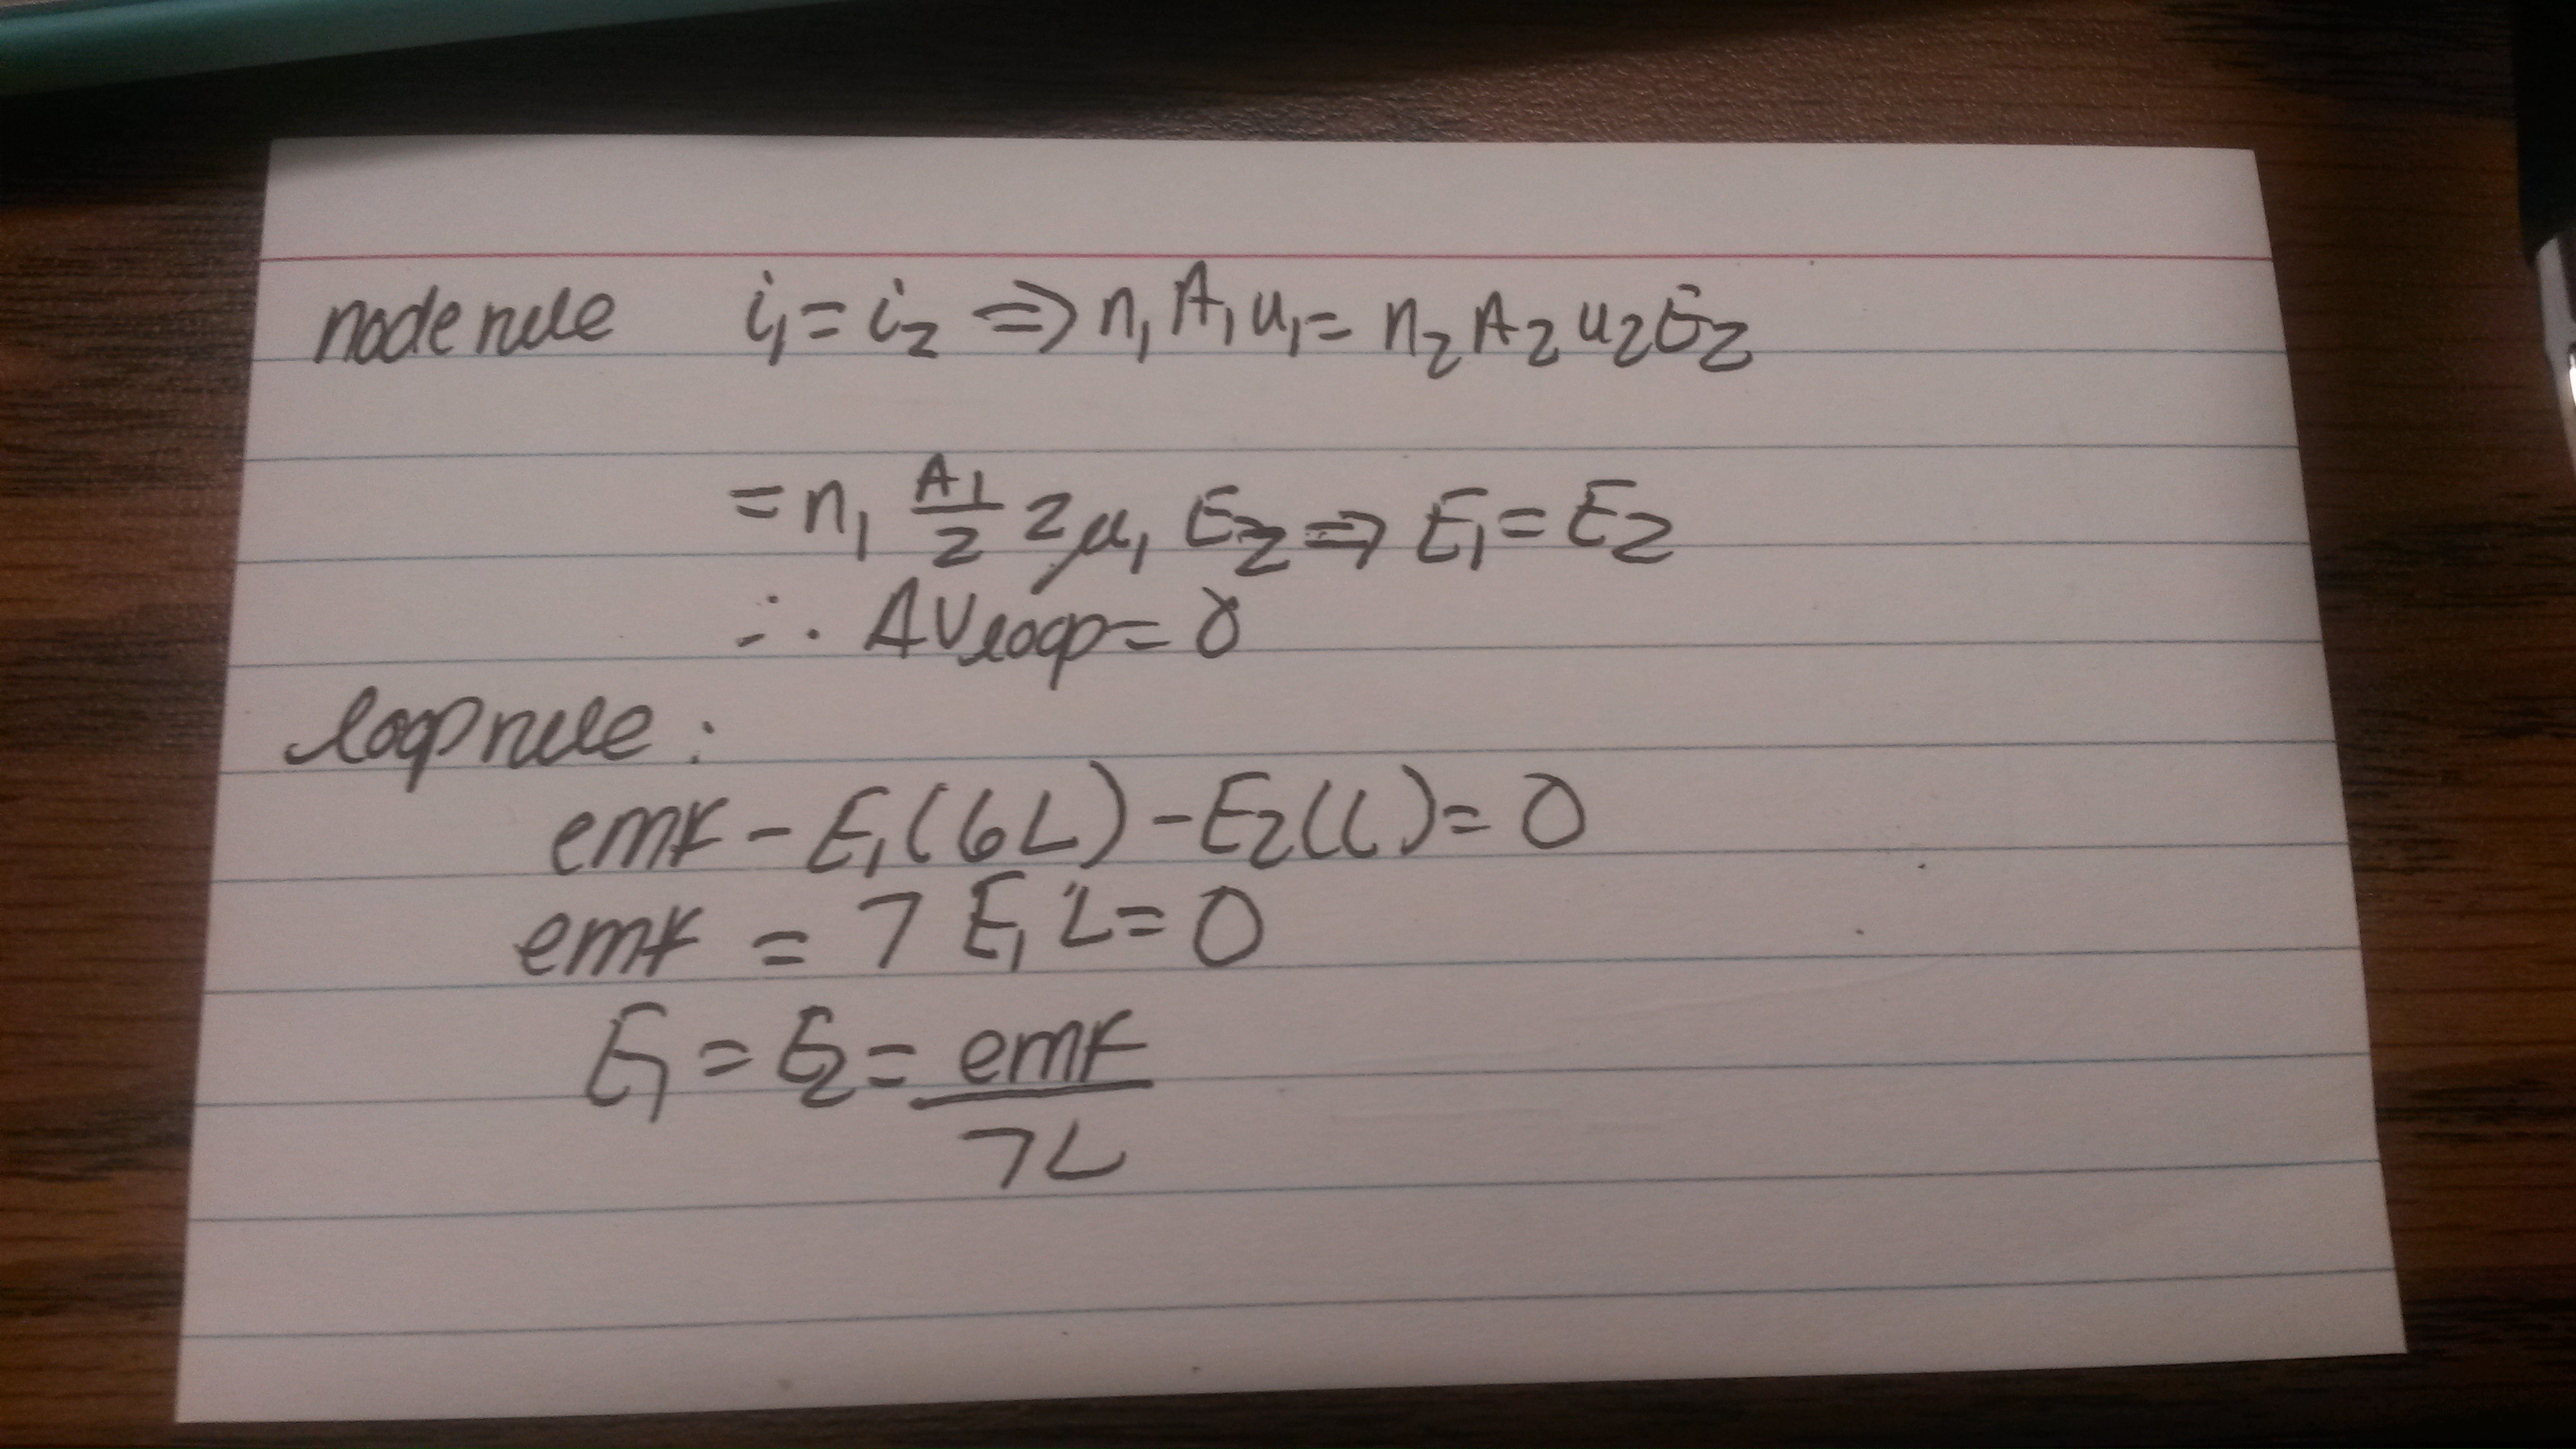 node rule i₁ = i₂ ⇒ n₁ A₁ u₁ = n₂ A₂ u₂ E₂
= n₁ A₁/2 2μ₁ E₂ ⇒ E₁ = E₂
∴ ΔV loop = 0
loop rule :
emf - E₁(6L) - E₂(L) = 0
emf = 7 E₁ L = 0
E₁ = E₂ = emf/7L